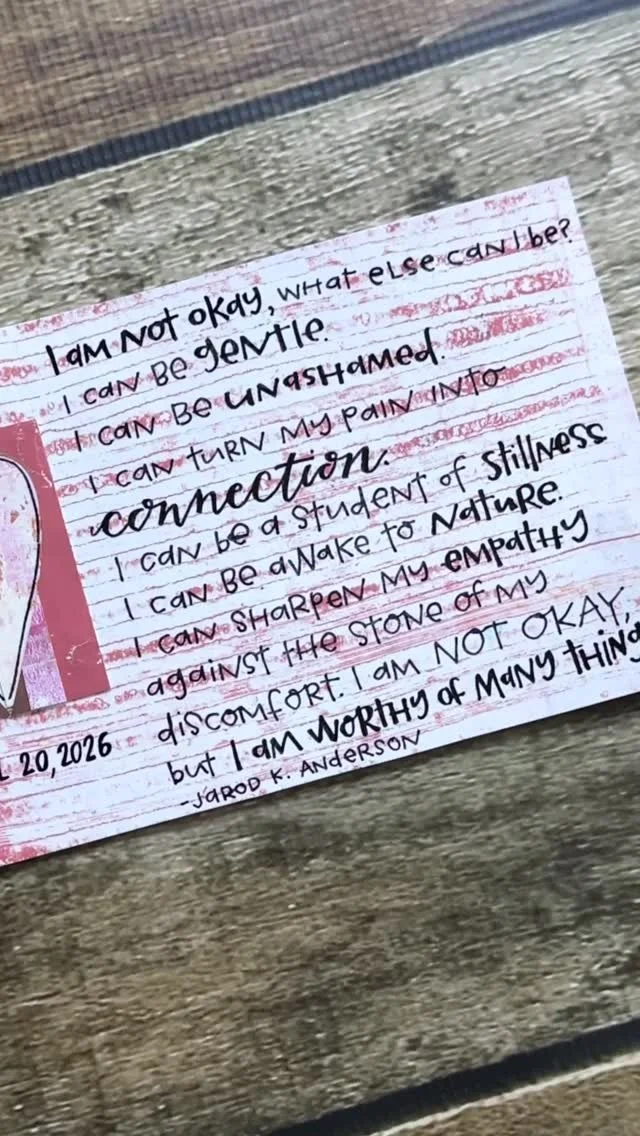 I am not okay, what else can I be?
I can be gentle.
I can be unashamed.
I can turn my pain into
connection.
I can be a student of stillness
I can be awake to nature.
I can sharpen my empathy
against the stone of my
discomfort. I am NOT OKAY,
but I am worthy of many thing
-Jarod K. Anderson
L 20, 2026